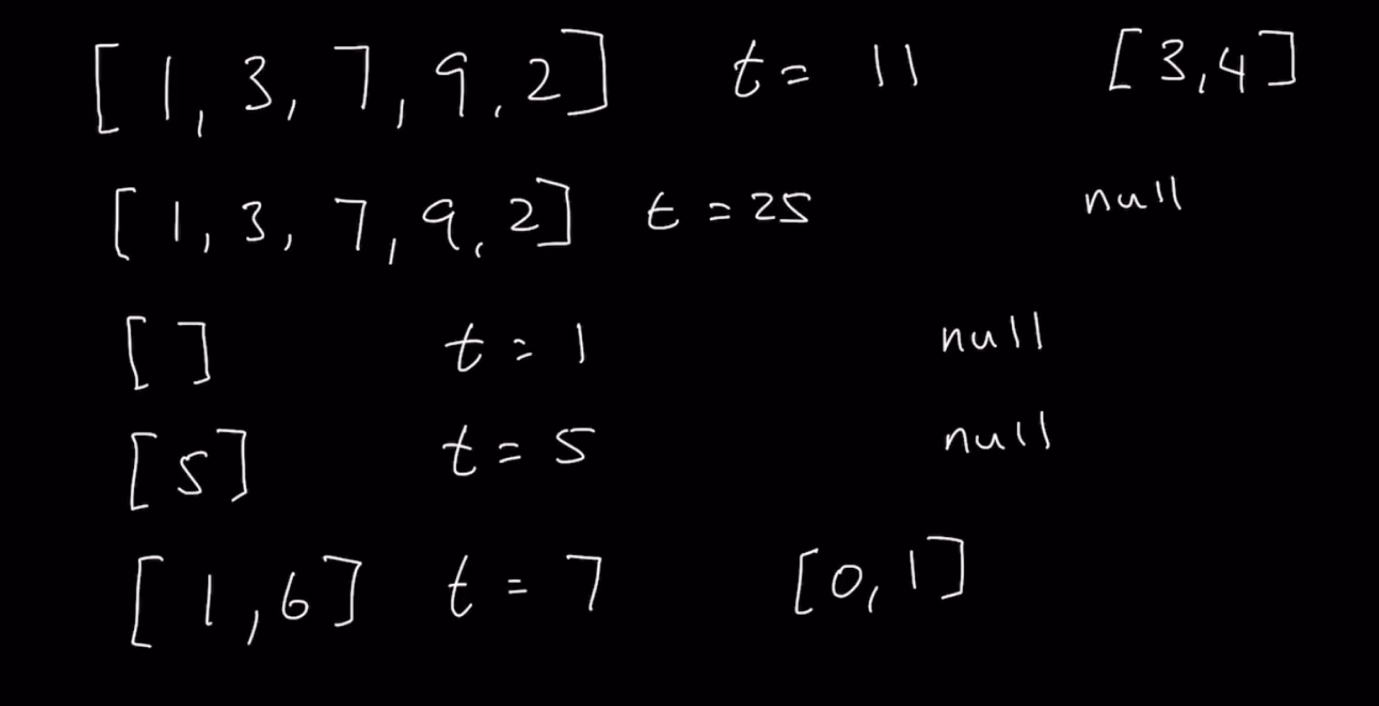 [1,3,7,9,2] t= 11 [3,4]
[1,3,7,9,2] t=25 null
[] t=1 null
[5] t=5 null
[1,6] t=7 [0,1]